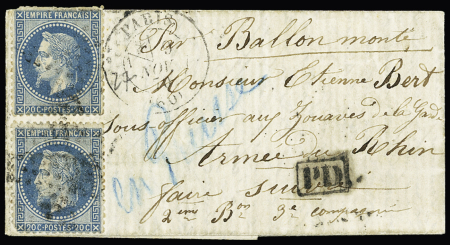 EMPIRE FRANÇAIS
20C POSTES 20C
EMPIRE FRANÇAIS
20C POSTES 20C
PARIS
NOV
Par Ballon monté
Monsieur Etienne Bert
Sous officier aux Zouaves de la Garde
Armée du Rhin
faire suivre
PD
2eme Bon 3e compagnie